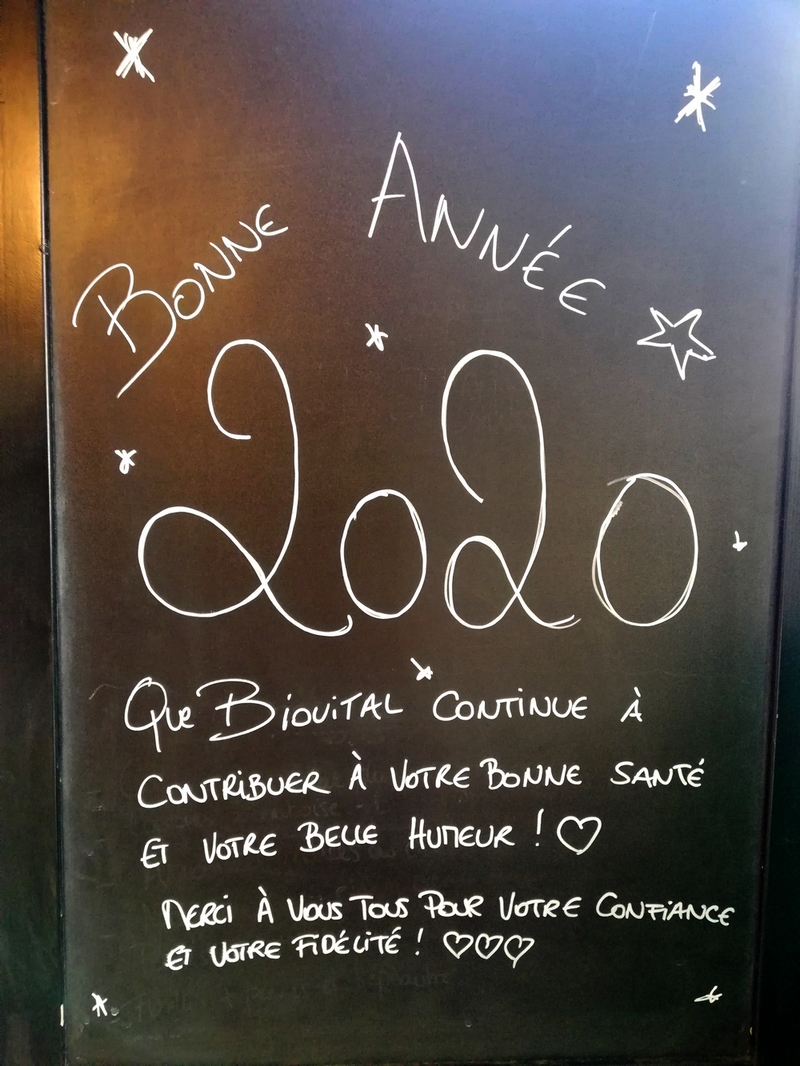 BONNE ANNÉE
2020
Que BIOVITAL CONTINUE À
CONTRIBUER À VOTRE BONNE SANTÉ
ET VOTRE BELLE HUMEUR ! ♡
MERCI À VOUS TOUS POUR VOTRE CONFIANCE
ET VOTRE FIDÉLITÉ ! ♡♡♡